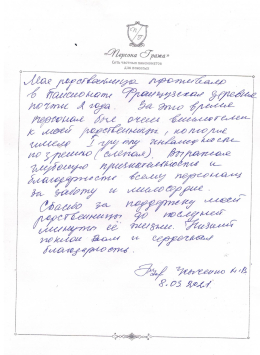 «Персона Грата»
Сеть частных пансионатов
для пожилых
Моя родственница проживала
в пансионате Французская деревня
почти 2 года. За это время
персонал был очень внимателен
к моей родственнице, которая
имела I группу инвалидности
по зрению (слепая). Выражаю
глубокую признательность и
благодарность всему персоналу
за заботу и милосердие.
Спасибо за поддержку моей
родственницы до последней
минуты её жизни. Низкий
поклон вам и сердечная
благодарность.
8.03.2021